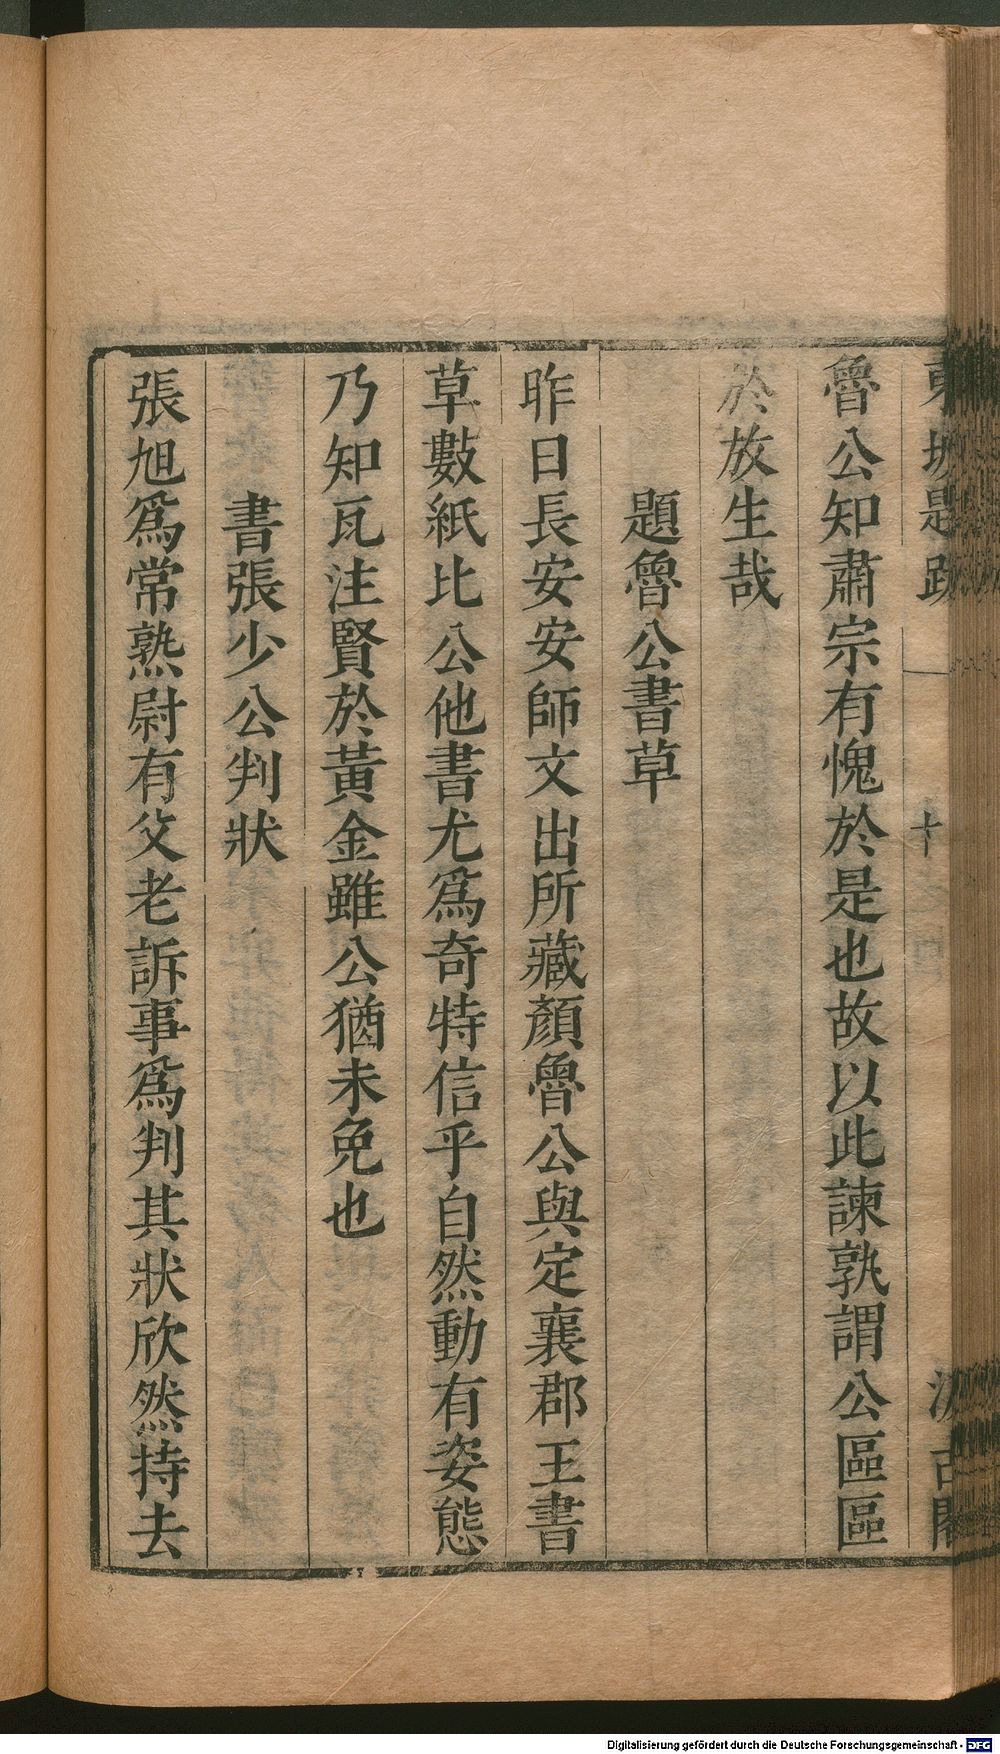 東坡題跋
十
汲古閣
魯公知肅宗有愧於是也故以此諫孰謂公區區
於放生哉
題魯公書草
昨日長安安師文出所藏顏魯公與定襄郡王書
草數紙比公他書尤爲奇特信乎自然動有姿態
乃知瓦注賢於黃金雖公猶未免也
書張少公判狀
張旭爲常熟尉有父老訴事爲判其狀欣然持去
Digitalisierung gefördert durch die Deutsche Forschungsgemeinschaft - DFG